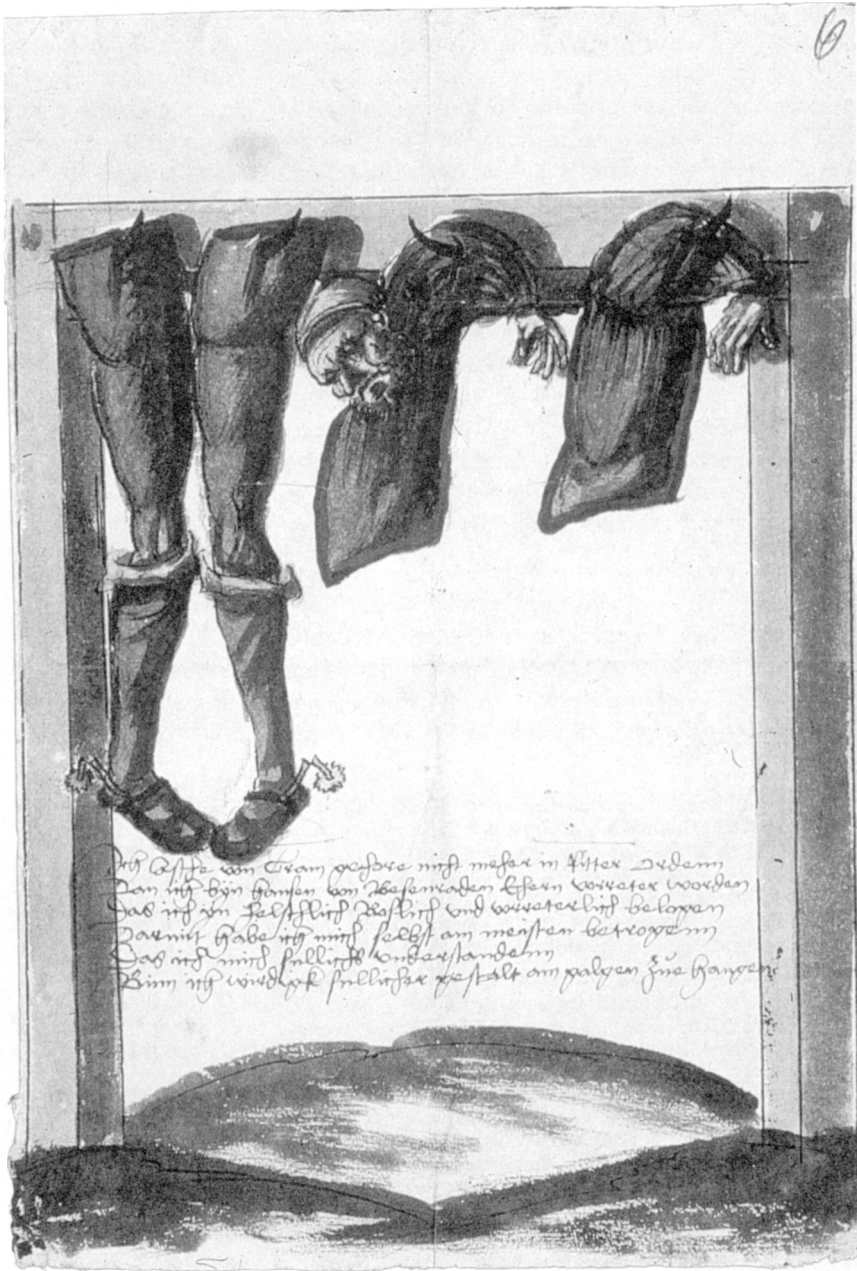 6
Ich Assche von Cram gehore nicht meher in Ritter Ordenn
Dan ich byn Hansen von Besenraden Ehern vorreter worden
Das ich yn felschlich Boslich und vorreterlich belogen
Darmit habe ich mich selbst am meisten betrogenn
Das ich mich sullichs understandenn
Binn ich wirdigk sullicher gestalt am galgen zue hangen